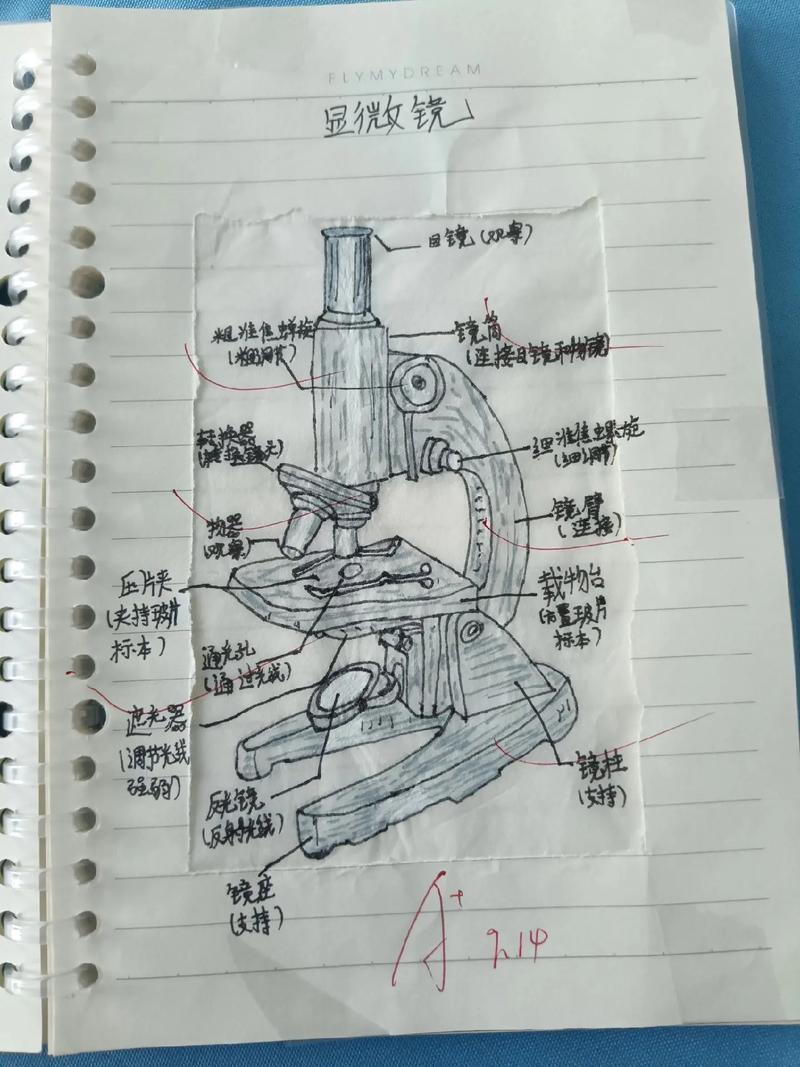 FLYMYDREAM
显微镜
目镜(观察)
粗准焦螺旋
(粗调节)
镜筒
(连接目镜和物镜)
转换器
细准焦螺旋
(细调节)
物器
(观察)
镜臂
(连接)
压片夹
(夹持玻片
标本)
载物台
(放置玻片
标本)
通光孔
(通过光线)
遮光器
(调节光线
强弱)
反光镜
(反射光线)
镜柱
(支持)
镜座
(支持)
A+
9.14